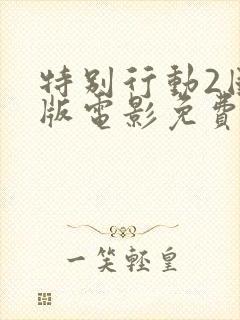 特别行動2
版電影免費
一笑輕皇